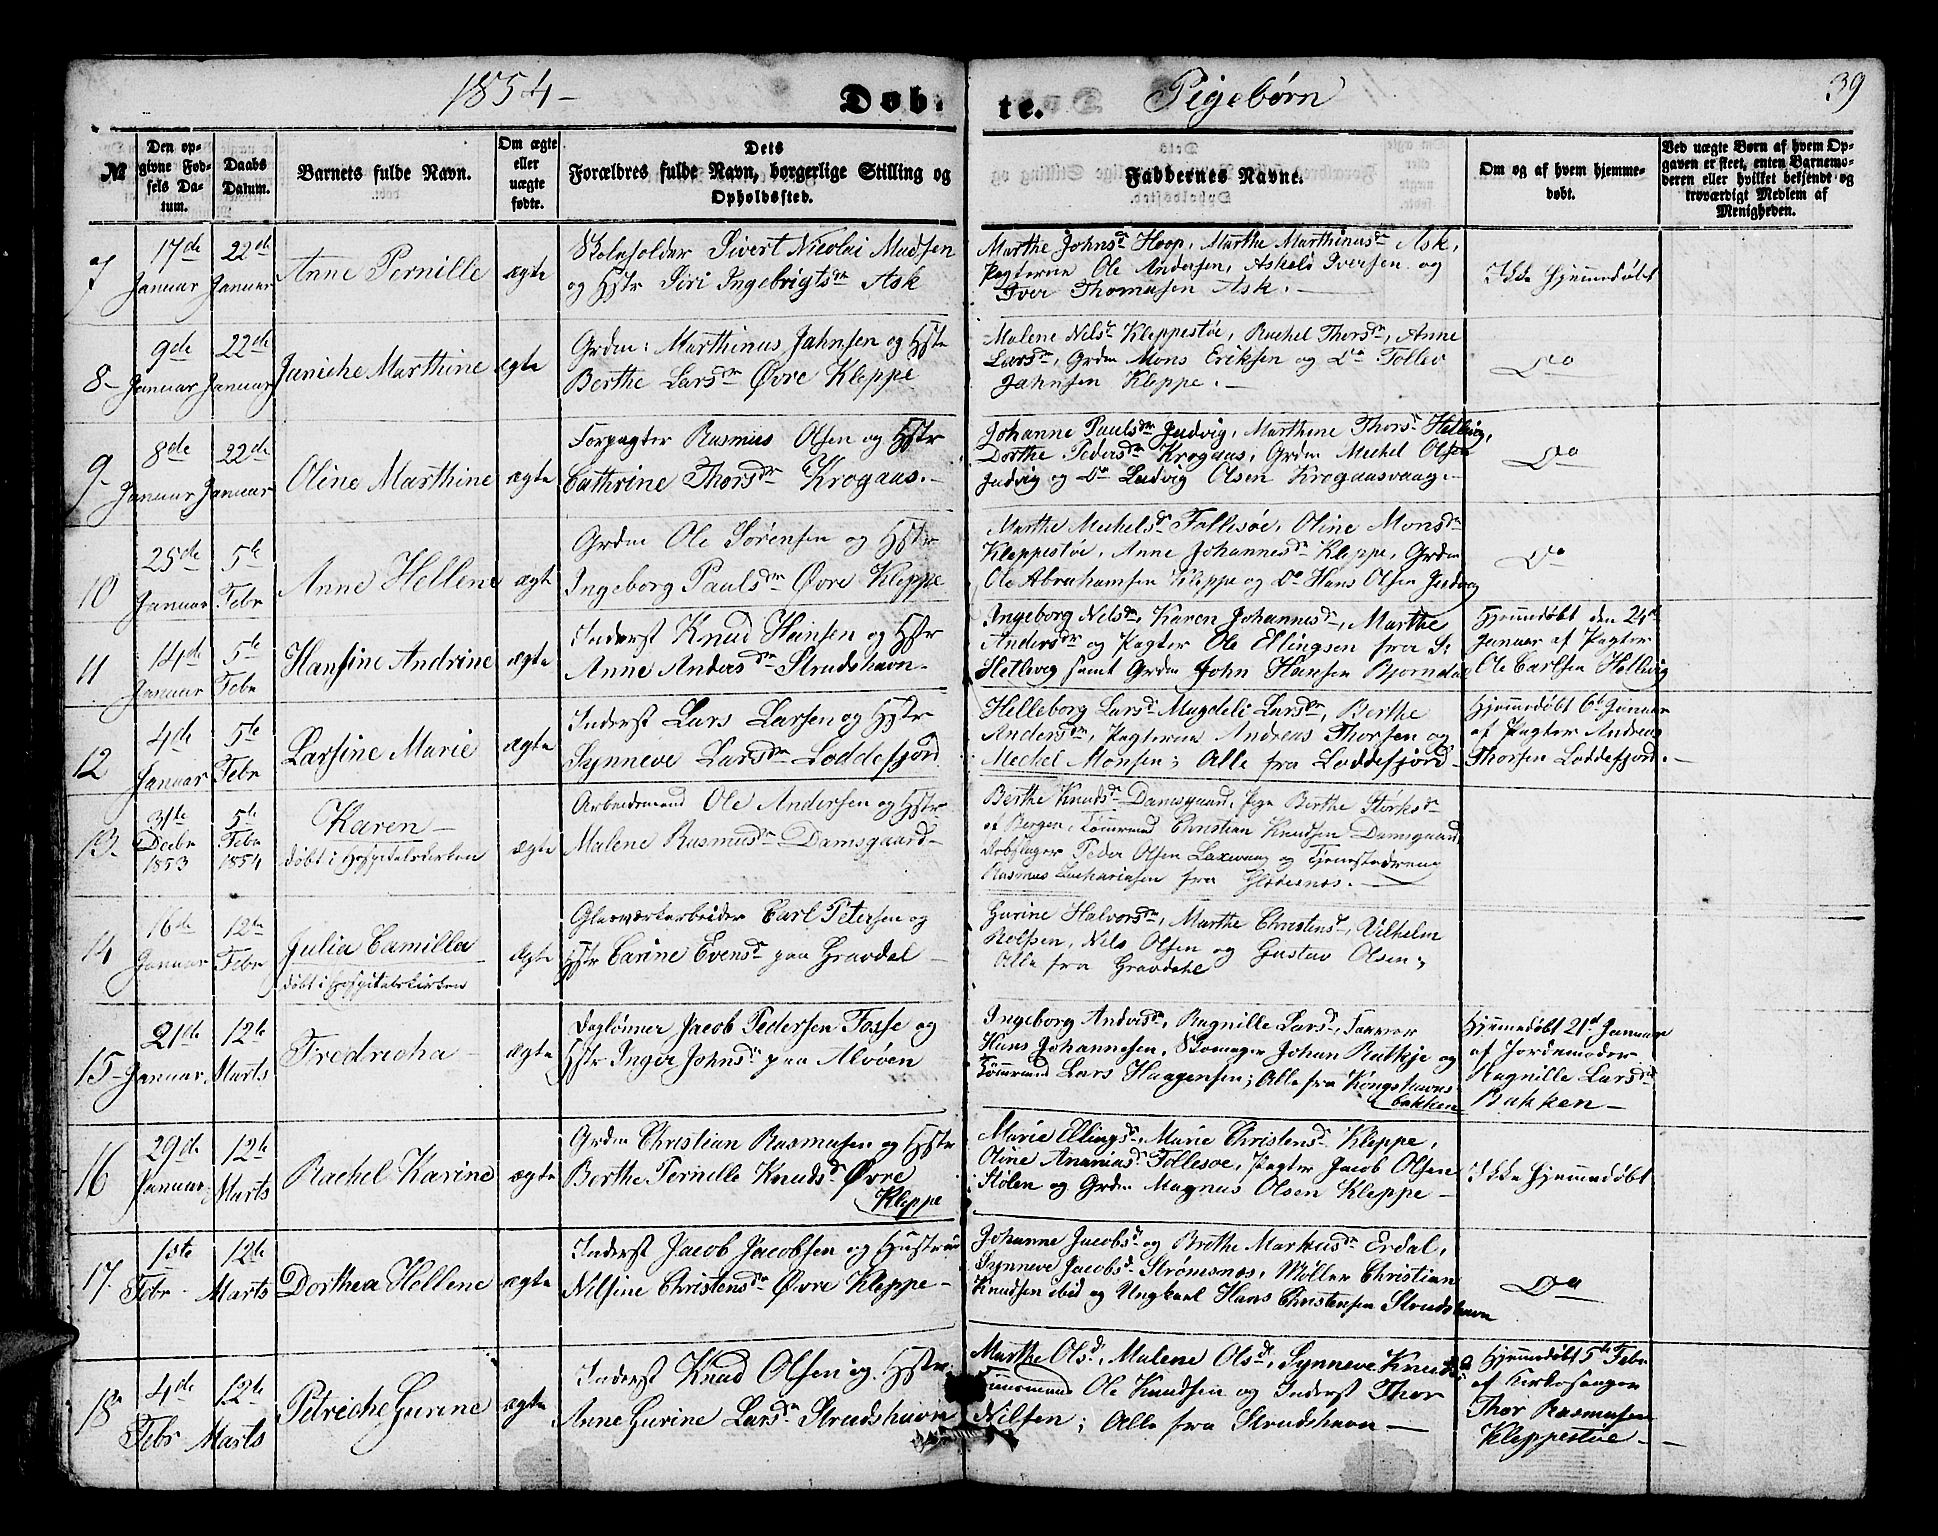 1854 – Døb- te. Pigebørn 39
№
Den opgivne Fødsels Datum.
Daabs Datum.
Barnets fulde Navn.
Om ægte eller uægte fødte.
Dets Forældres fulde Navn, borgerlige Stilling og Opholdssted.
Faddernes Navne.
Om og af hvem hjemmedøbt.
Ved uægte Børn af hvem Opgaven er skeet, enten Barnemoderen eller hvilket bekjendt og troværdigt Medlem af Menigheden.
7 17de Januar 22de Januar Anne Pernille ægte
Skoleholder Sivert Nicolai Madsen
og Hstr Siri Ingebrigtsdr Ask
Marthe Johnsdr Hoop, Marthe Marthinusdr Ask,
Pagterne Ole Andersen, Askeld Iversen og
Iver Thomasen Ask. –
Ikke Hjemmedøbt
8 – 9de Januar 22de Januar Janiche Marthine ægte
Grdm: Marthinus Jahnsen og Hstr
Berthe Larsdr Øvre Kleppe
Malene Nelsdr Kleppestøe, Rachel Thorsdr, Anne
Larsdr, Grdm Mons Eriksen og Do Tollev
Jahnsen Kleppe. –
Do
9 – 8de Januar 22de Januar Oline Marthine ægte
Forpagter Rasmus Olsen og Hstr
Cathrine Thorsdr Krogaas. –
Johanne Paulsdr Judvig, Marthene Thorsdr Hellvig,
Dorthe Pedersdr Krogaas, Grdm Mechel Olsen
Judvig og Do Ludvig Olsen Krogaasvaag. –
Do
10 25de Januar 5te Febr Anne Hellene ægte
Grdm Ole Sørensen og Hstr
Ingeborg Paulsdr Øvre Kleppe
Marthe Mechelsdr Follesøe, Oline Monsdr
Kleppestøe, Anne Johannesdr Kleppe, Grdm
Ole Abrahamsen Kleppe og Do Hans Olsen Judvig
Do
11 14de Januar 5te Febr Hansine Andrine ægte
Inderst Knud Hansen og Hstr
Anne Andersdr Strudshavn –
Ingeborg Nelsdr, Karen Johannesdr, Marthe
Andersdr og Pagter Ole Ellingsen fra S:
Hellevig samt Grdm John Hansen Bjorndal
Hjemmedøbt den 24de
Januar af Pagter
Ole Carlsen Hellevig
12 4de Januar 5te Febr Larsine Marie ægte
Inderst Lars Larsen og Hstr
Synneve Larsdr Loddefjord
Helleborg Larsdr Magdeli Larsdr, Berthe
Andersdr, Pagterne Andreas Thorsen og
Mechel Monsen; Alle fra Loddefjord –
Hjemmedøbt 6te Januar
af Pagter Andreas
Thorsen Loddefjord. –
13 – 31te Decbr 1853 5te Febr 1854 Karen –
døbt i Hospitalskirken ægte
Arbeidsmand Ole Andersen og Hstr
Malene Rasmusdr Damsgaard –
Berthe Knudsdr Damsgaard, Pige Berthe Størksdr
af Bergen, Tømrmd Christian Knudsen Damsgaard,
Rebslager Peder Olsen Laxevaag og Tjenestedreng
Rasmus Zachariasen fra Gjødesnes. –
14 16de Januar 12te Febr Julia Camilla
døbt i Hospitalskirken ægte
Glasværkarbeider Carl Petersen og
Hstr Carine Evensdr paa Gravdal –
Gurine Halvorsdr, Marthe Christensdr, Vilhelm
Rolfsen, Nels Olsen og Gustav Olsen;
Alle fra Gravdahl
15 – 21de Januar 12te Marts Fredricha – ægte
Daglønner Jacob Pedersen Fosse og
Hstr Inger Johnsdr paa Alvøen
Ingeborg Andersdr, Ragnille Larsdr, Farver
Hans Johannesen, Skomager Johan Ratkje og
Tømrmand Lars Haagensen; Alle fra Kongshavns
bakken
Hjemmedøbt 21de Januar
af Jordemoder
Ragnille Larsdr
Bakken –
16 29de Januar 12te Marts Rachel Karine ægte
Grdm Christian Rasmusen og Hstr
Berthe Pernille Knudsdr Øvre
Kleppe
Marie Ellingsdr, Marie Christensdr Kleppe,
Oline Ananiasdr Follesøe, Pagter Jacob Olsen
Stølen og Grdm Magnus Olsen Kleppe –
Ikke Hjemmedøbt
17 1ste Febr. 12te Marts Dorthea Hellene ægte
Inderst Jacob Jacobsen og Hustrue
Nilsine Christensdr Øvre Kleppe –
Johanne Jacobsdr og Brithe Markusdr Erdal,
Synneve Jacobsdr Strømsnes, Møller Christian
Knudsen ibid og Ungkarl Hans Christensen Strudshavn
Do
18 4de Febr 12te Marts Petriche Gurine ægte
Inderst Knud Olsen og Hstr
Anne Gurine Larsdr Strudshavn
Marthe Olsdr, Malene Olsdr, Synneve Knudsdr
Ole Knudsen og Inderst Thor
Nilsen; Alle fra Strudshavn –
Hjemmedøbt 5te Febr
af Kirkesanger
Thor Rasmusen
Kleppestøe –